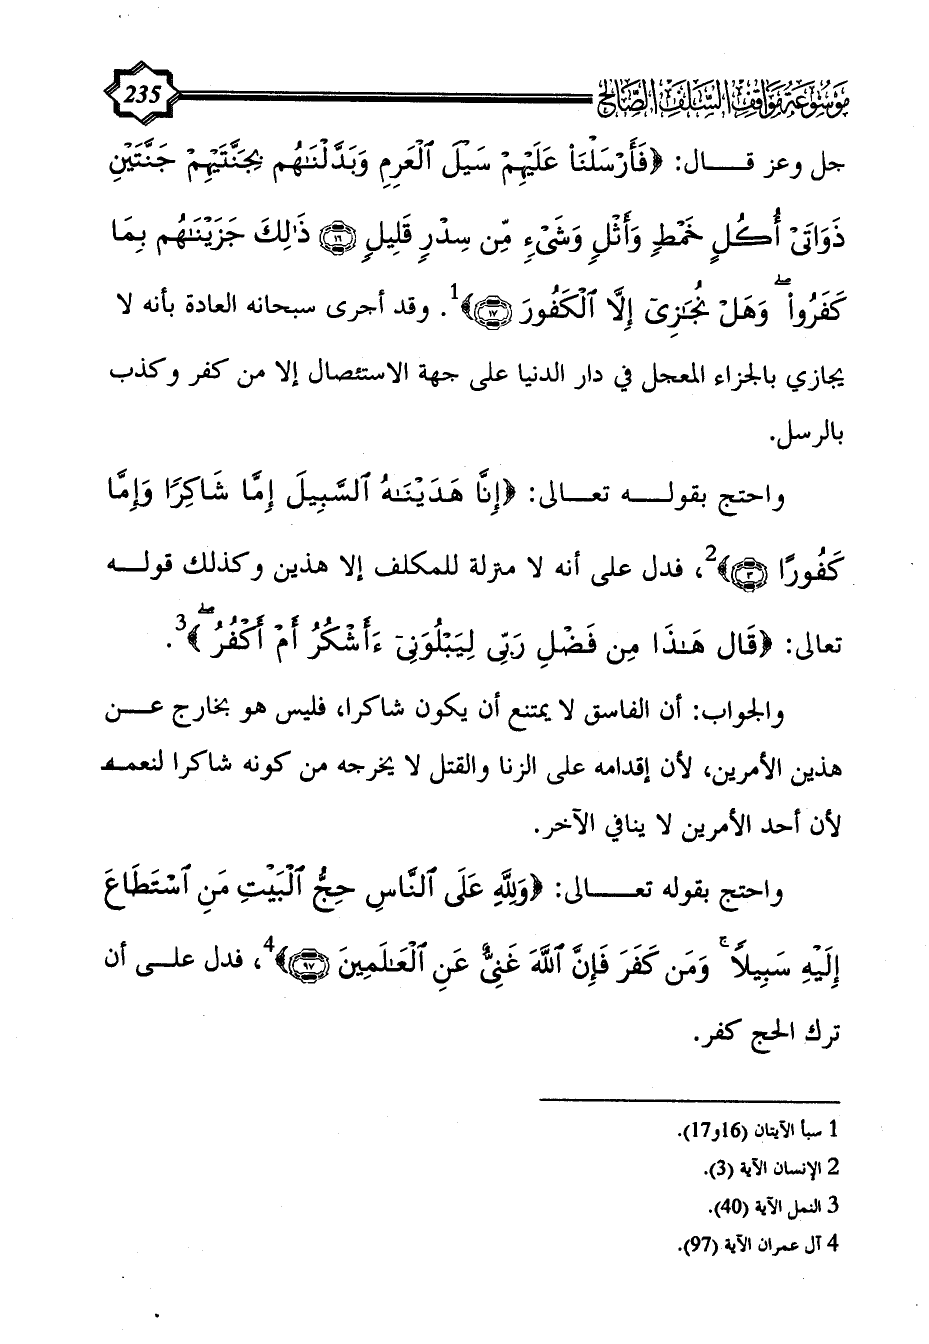 موسوعة مواقف السلف الصالح 235
جل وعز قـــال: ﴿فَأَرْسَلْنَا عَلَيْهِمْ سَيْلَ ٱلْعَرِمِ وَبَدَّلْنَـٰهُم بِجَنَّتَيْهِمْ جَنَّتَيْنِ
ذَوَاتَىْ أُكُلٍ خَمْطٍ وَأَثْلٍ وَشَىْءٍ مِّن سِدْرٍ قَلِيلٍ ﴿١٦﴾ ذَٰلِكَ جَزَيْنَـٰهُم بِمَا
كَفَرُوا۟ ۖ وَهَلْ نُجَـٰزِىٓ إِلَّا ٱلْكَفُورَ ﴿١٧﴾﴾1. وقد أجرى سبحانه العادة بأنه لا
يجازي بالجزاء المعجل في دار الدنيا على جهة الاستئصال إلا من كفر وكذب
بالرسل.
واحتج بقولـــه تعـــالى: ﴿إِنَّا هَدَيْنَـٰهُ ٱلسَّبِيلَ إِمَّا شَاكِرًا وَإِمَّا
كَفُورًا ﴿٣﴾﴾2، فدل على أنه لا منزلة للمكلف إلا هذين وكذلك قولـــه
تعالى: ﴿قَالَ هَـٰذَا مِن فَضْلِ رَبِّى لِيَبْلُوَنِىٓ ءَأَشْكُرُ أَمْ أَكْفُرُ ۖ﴾3.
والجواب: أن الفاسق لا يمتنع أن يكون شاكرا، فليس هو بخارج عـــن
هذين الأمرين، لأن إقدامه على الزنا والقتل لا يخرجه من كونه شاكرا لنعمـه
لأن أحد الأمرين لا ينافي الآخر.
واحتج بقوله تعـــالى: ﴿وَلِلَّهِ عَلَى ٱلنَّاسِ حِجُّ ٱلْبَيْتِ مَنِ ٱسْتَطَاعَ
إِلَيْهِ سَبِيلًا ۚ وَمَن كَفَرَ فَإِنَّ ٱللَّهَ غَنِىٌّ عَنِ ٱلْعَـٰلَمِينَ ﴿٩٧﴾﴾4، فدل علـى أن
ترك الحج كفر.
1 سبأ الآيتان (16و17).
2 الإنسان الآية (3).
3 النمل الآية (40).
4 آل عمران الآية (97).